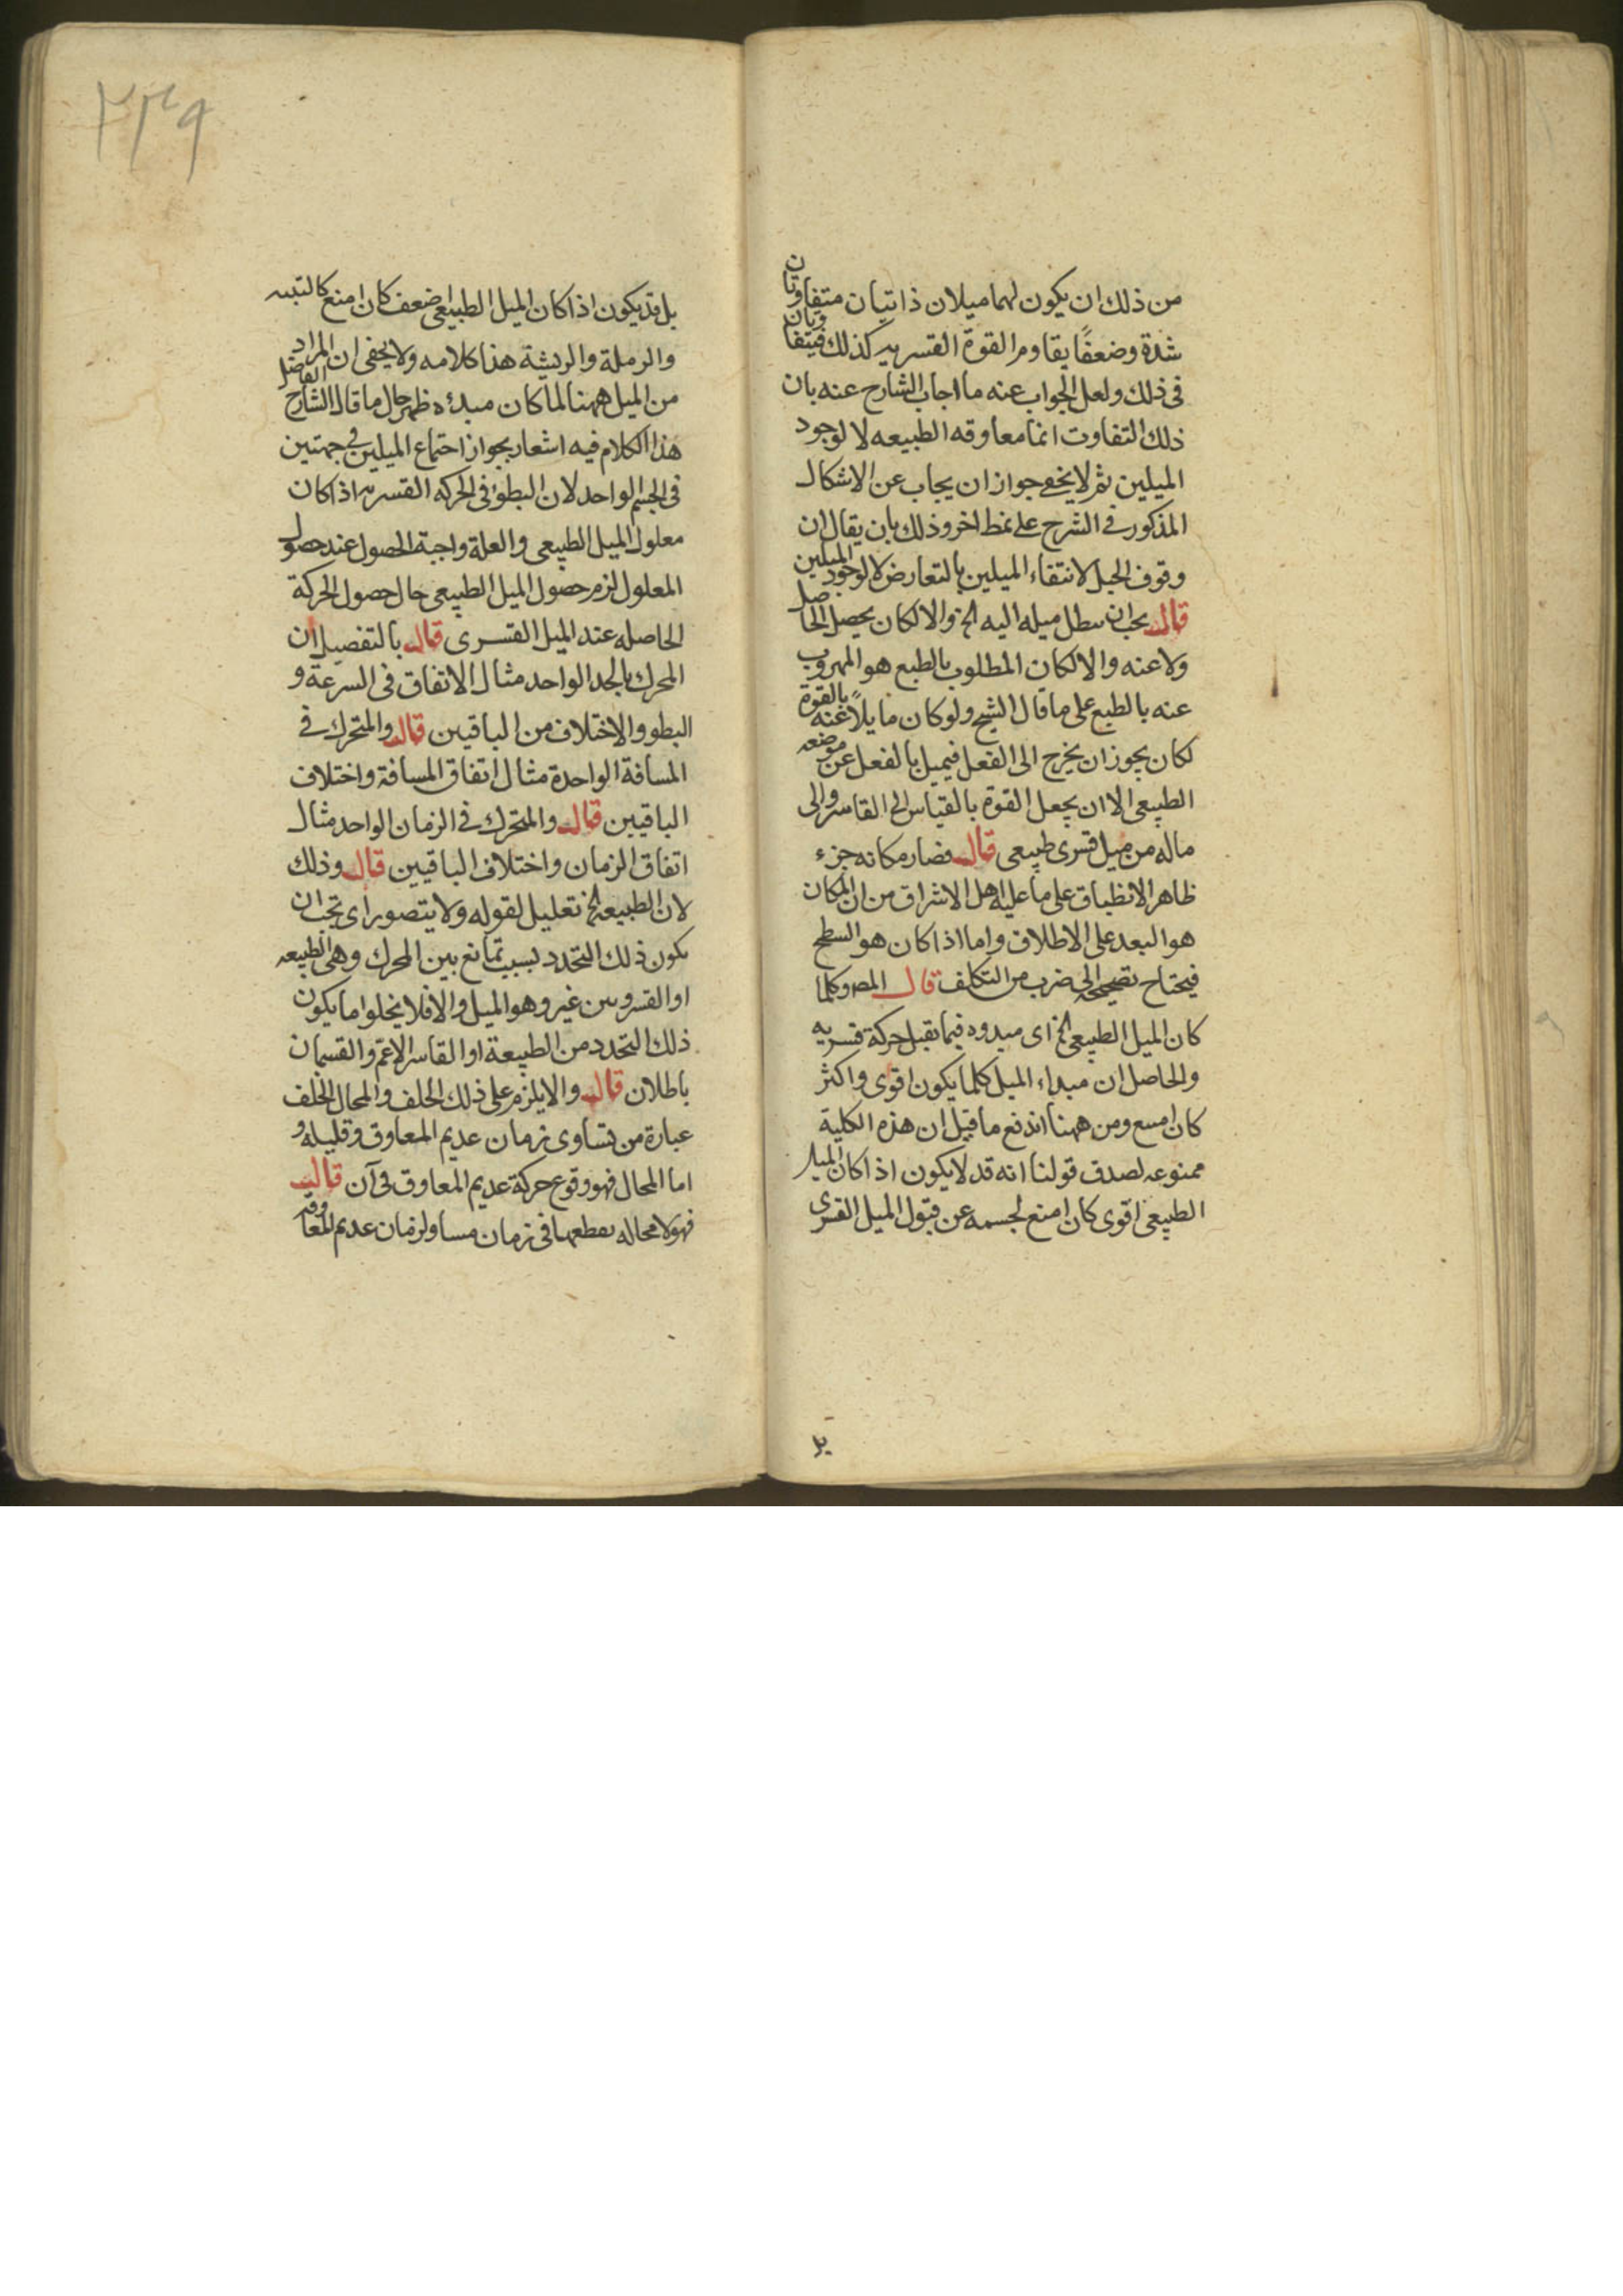 من ذلك ان يكون لهما ميلان ذاتيان متفاوتان
شدة وضعفًا يقاوم القوة القسريه كذلك فيتفاوتان
فى ذلك ولعل الجواب عنه ما اجاب الشارح عنه بان
ذلك التفاوت انما معاوقه الطبيعه لا لوجود
الميلين ثم لا يخفى جواز ان يجاب عن الاشكال
المذكور فى الشرح على نمط اخر وذلك بان يقال ان
وقوف الحبل لانتفاء الميلين بالتعارض لا لوجود الميلين
قال يجب ان يبطل ميله اليه الخ والا لكان يحصل الحاصل
ولا عنه والا لكان المطلوب بالطبع هو المهروب
عنه بالطبع على ما قال الشيخ ولو كان مايلاً عنه بالقوة
لكان يجوز ان يخرج الى الفعل فيميل بالفعل عن موضعه
الطبيعى الا ان يجعل القوة بالقياس الى القاسر والى
ماله من ميل قسرى طبيعى قال فصار مكانه جزء
ظاهر الانطباق على ما عليه اهل الاشراق من ان المكان
هو البعد على الاطلاق واما اذا كان هو السطح
فيحتاح تصحيحه الى ضرب من التكلف قال المصر وكلما
كان الميل الطبيعى الخ اى مبدوه فيما تقبل حركة قسريه
والحاصل ان مبداء الميل كلما يكون اقوى واكثر
كان امنع ومن ههنا اندفع ما قيل ان هذه الكلية
ممنوعه لصدق قولنا انه قد لا يكون اذا كان الميل
الطبيعى اقوى كان امنع لجسمه عن قبول الميل القسرى
بل
٢٣٩
بل قد يكون اذا كان الميل الطبيعى اضعف كان امنع كالتبنه
والرملة والريشة هذا كلامه ولا يخفى ان المراد
من الميل ههنا لما كان مبدئه ظهر حال ما قال الشارح الفاضل
هذا الكلام فيه اشعار بجواز اجتماع الميلين فى جهتين
فى الجسم الواحد لان البطؤ فى الحركه القسريه اذا كان
معلول الميل الطبيعى والعلة واجبة الحصول عند حصول
المعلول لزم حصول الميل الطبيعى حال حصول الحركة
الحاصله عند الميل القسرى قال بالتفصيل ان
المحرك بالحد الواحد مثال الاتفاق فى السرعة و
البطو والاختلاف من الباقيين قال والمتحرك فى
المسافة الواحدة مثال اتفاق المسافة واختلاف
الباقيين قال والمتحرك فى الزمان الواحد مثال
اتفاق الزمان واختلاف الباقيين قال وذلك
لان الطبيعه الخ تعليل لقوله ولا يتصور اى يجب ان
يكون ذلك التحدد بسبب تمانع بين المحرك وهى الطبيعه
او القسر وبين غير وهو الميل والا فلا يخلوا ما يكون
ذلك التحدد من الطبيعة او القاسر الاعم والقسمان
باطلان قال والا يلزم على ذلك الخلف والمحال الخلف
عبارة من تساوى زمان عديم المعاوق وقليله و
اما المحال فهو وقوع حركة عديم المعاوق فى آن قال
فهو لا محاله يقطعها فى زمان مساو لزمان عديم المعاوقه